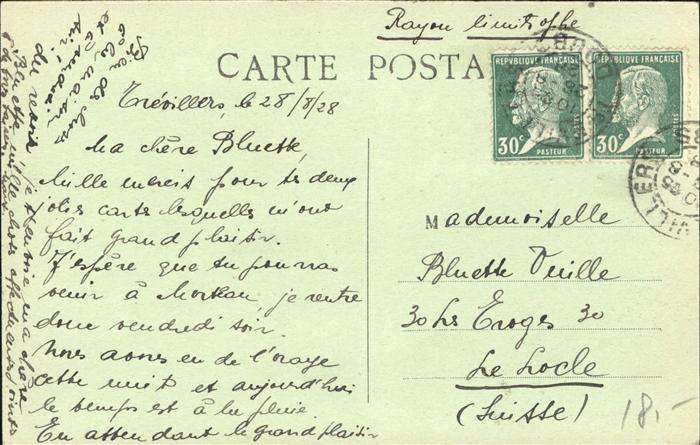 Rayon limitrophe
CARTE POSTA
REPVBLIQUE FRANÇAISE
30c
PASTEUR
REPVBLIQUE FRANÇAISE
30c
PASTEUR
DOUBS
Trévillers, le 28/8/28
Ma chère Bluette,
Mille mercis pour tes deux
jolies cartes lesquelles m'ont
fait grand plaisir.
J'espère que tu pourras
venir à Morteau, je rentre
donc vendredi soir.
Nous avons eu de l'orage
cette nuit et aujourd'hui
le temps est à la pluie.
En attendant le grand plaisir
du revoir, je t'envoie ma chère
Bluette, mille choses affectueuses
Mademoiselle
Bluette Vuille
30 Les Eroges 30
Le Locle
(Suisse)
18.-